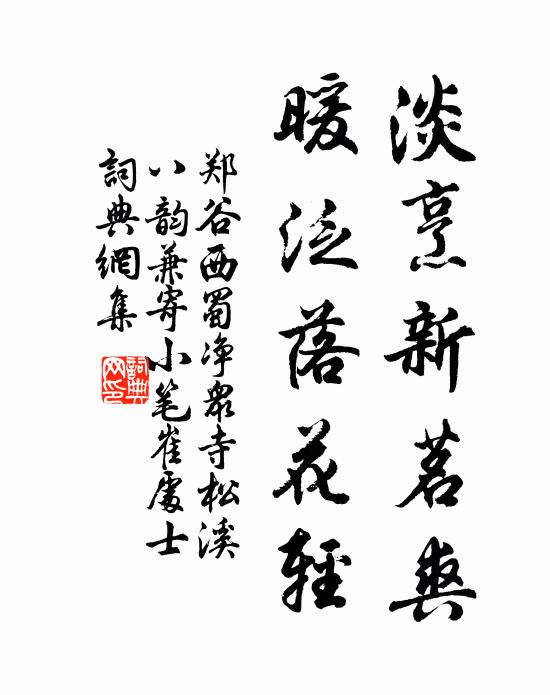 淡烹新茗爽
暖泛落花輕
郑谷西蜀净眾寺松溪
八韵兼寄小笔崔處士
詞典網集
詞典網印